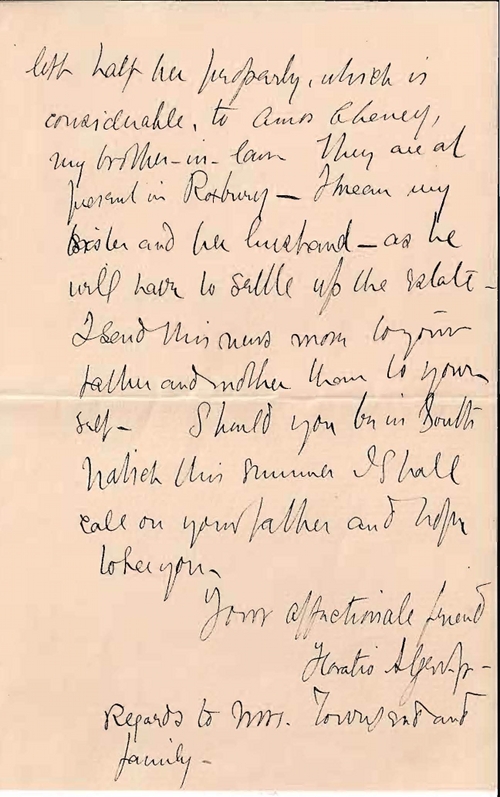 left half her property, which is
considerable, to Amos Cheney,
my brother-in-law. They are at
present in Roxbury — I mean my
sister and her husband — as he
will have to settle up the estate —
I send this news more to your
father and mother than to your-
self — Should you be in South
Natick this summer I shall
call on your father and hope
to see you —
Your affectionate friend
Horatio Alger Jr —
Regards to Mrs. Townsend and
family —